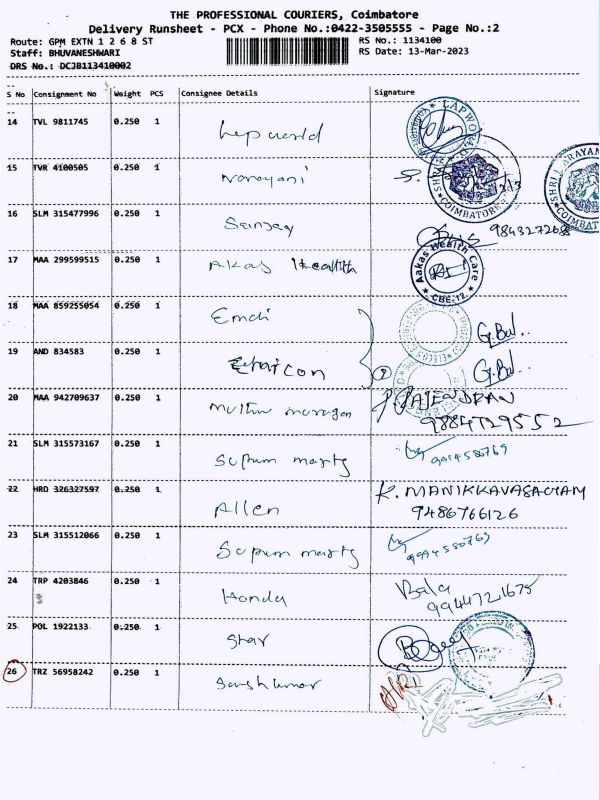 THE PROFESSIONAL COURIERS, Coimbatore
Delivery Runsheet - PCX - Phone No.:0422-3505555 - Page No.:2
Route: GPM EXTN 1 2 6 8 ST RS No.: 1134100
Staff: BHUVANESHWARI RS Date: 13-Mar-2023
DRS No.: DCJB113410002
S No Consignment No Weight PCS Consignee Details Signature
14 TVL 9811745 0.250 1 Lapworld
15 TVR 4100505 0.250 1 Narayani
16 SLM 315477996 0.250 1 Sanjay 9843272688
17 MAA 299599515 0.250 1 Akas Health Aakas Health Care CBE-12
18 MAA 859255054 0.250 1 Emdi G.Bal..
19 AND 834583 0.250 1 G.Bal..
20 MAA 942709637 0.250 1 P. RAJENDRAN
9884729552
21 SLM 315573167 0.250 1 9994580769
22 HRD 326327597 0.250 1 Allen K. MANIKKAVASAGAM
9486766126
23 SLM 315512066 0.250 1 9994580769
24 TRP 4203846 0.250 1 Honda Bala
9944721675
25 POL 1922133 0.250 1 Star
26 TRZ 56958242 0.250 1